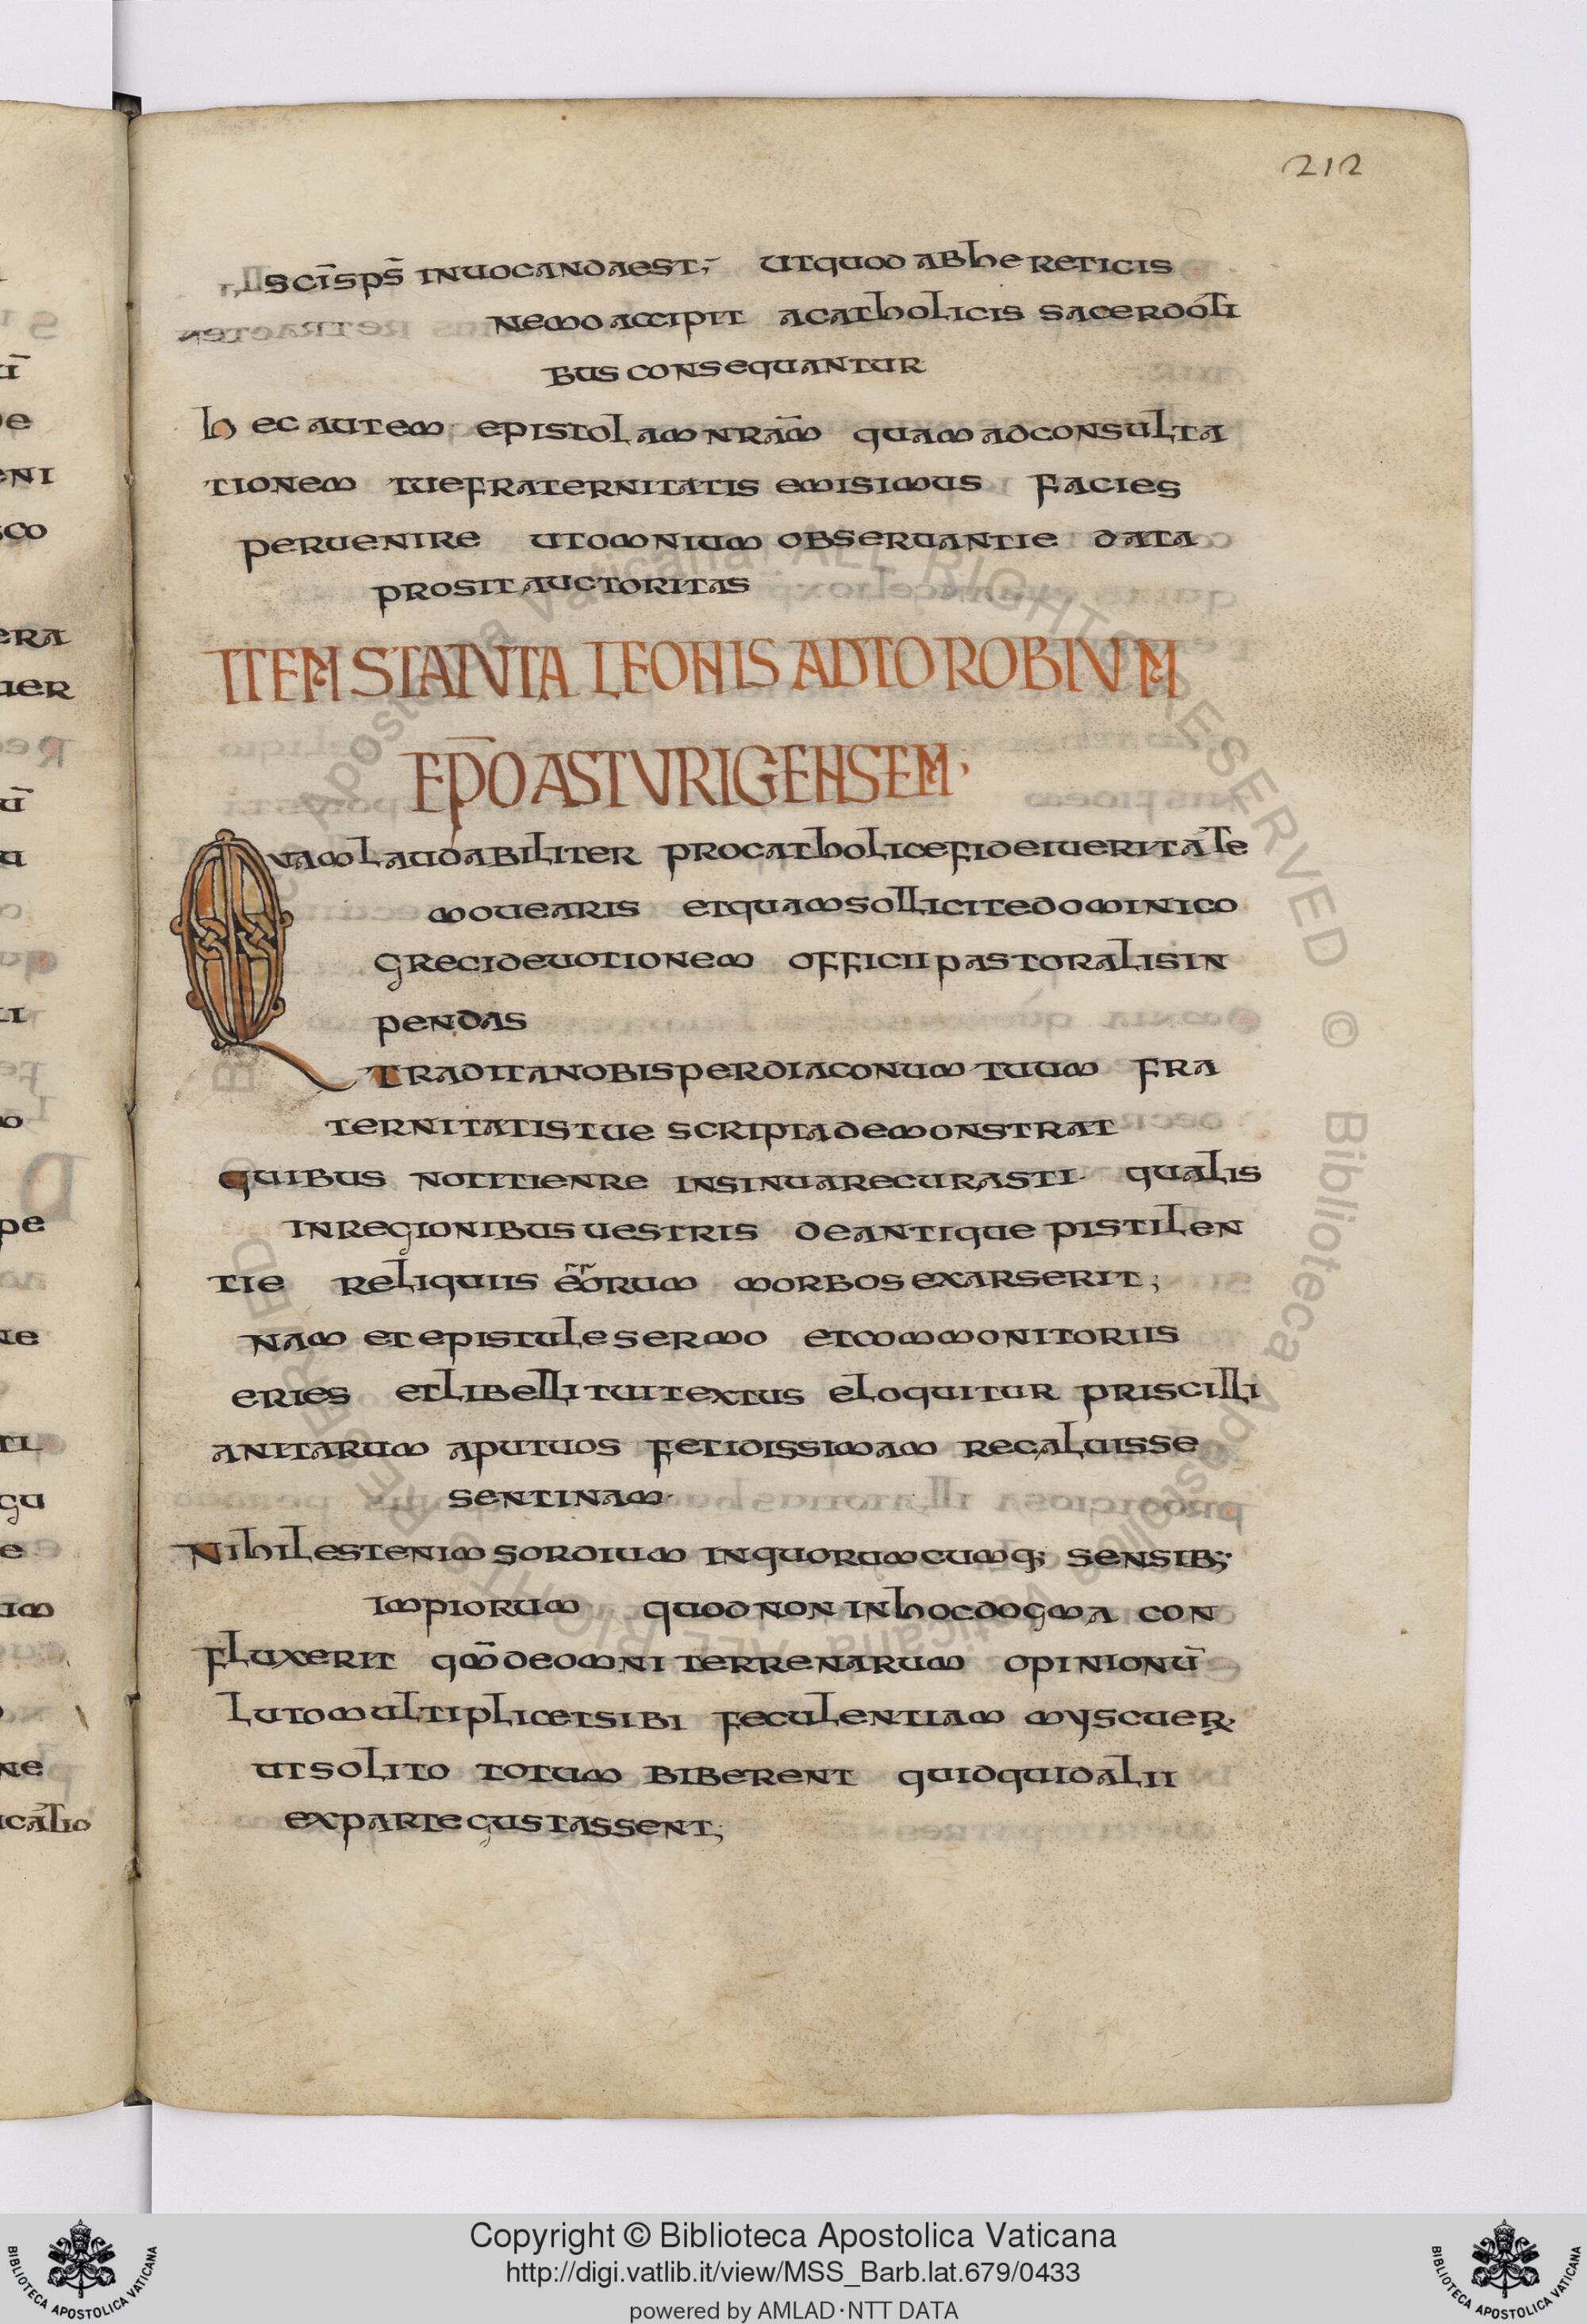 212
scis sps inuocanda est; ut quod ab hereticis
nemo accipit a catholicis sacerdoti
bus consequantur
hec autem epistolam nram quam ad consulta
tionem tue fraternitatis emisimus facies
peruenire ut omnium obseruantie data
prosit auctoritas
ITEM STATVTA LEONIS AD TOROBIVM
EPO ASTVRIGENSEM·
Quam laudabiliter pro catholice fidei ueritate
mouearis et quam sollicite dominico
greci deuotionem officii pastoralis in
pendas
tradita nobis per diaconum tuum fra
ternitatis tue scripta demonstrat
quibus notitie nre insinuare curasti· qualis
in regionibus uestris de antique pistilen
tie reliquiis errorum morbos exarserit;
nam et epistule sermo et commonitoriis
eries et libelli tui textus eloquitur priscilli
anitarum aput uos fetidissimam recaluisse
sentinam·
nihil est enim sordium in quorumcumq; sensib;
impiorum quod non in hoc dogma con
fluxerit qm̄ de omni terrenarum opinionū
luto multiplicet sibi feculentiam myscuer·
ut solito totum biberent quidquid alii
ex parte gustassent;
Copyright © Biblioteca Apostolica Vaticana
http://digi.vatlib.it/view/MSS_Barb.lat.679/0433
powered by AMLAD·NTT DATA
BIBLIOTECA APOSTOLICA VATICANA
BIBLIOTECA APOSTOLICA VATICANA